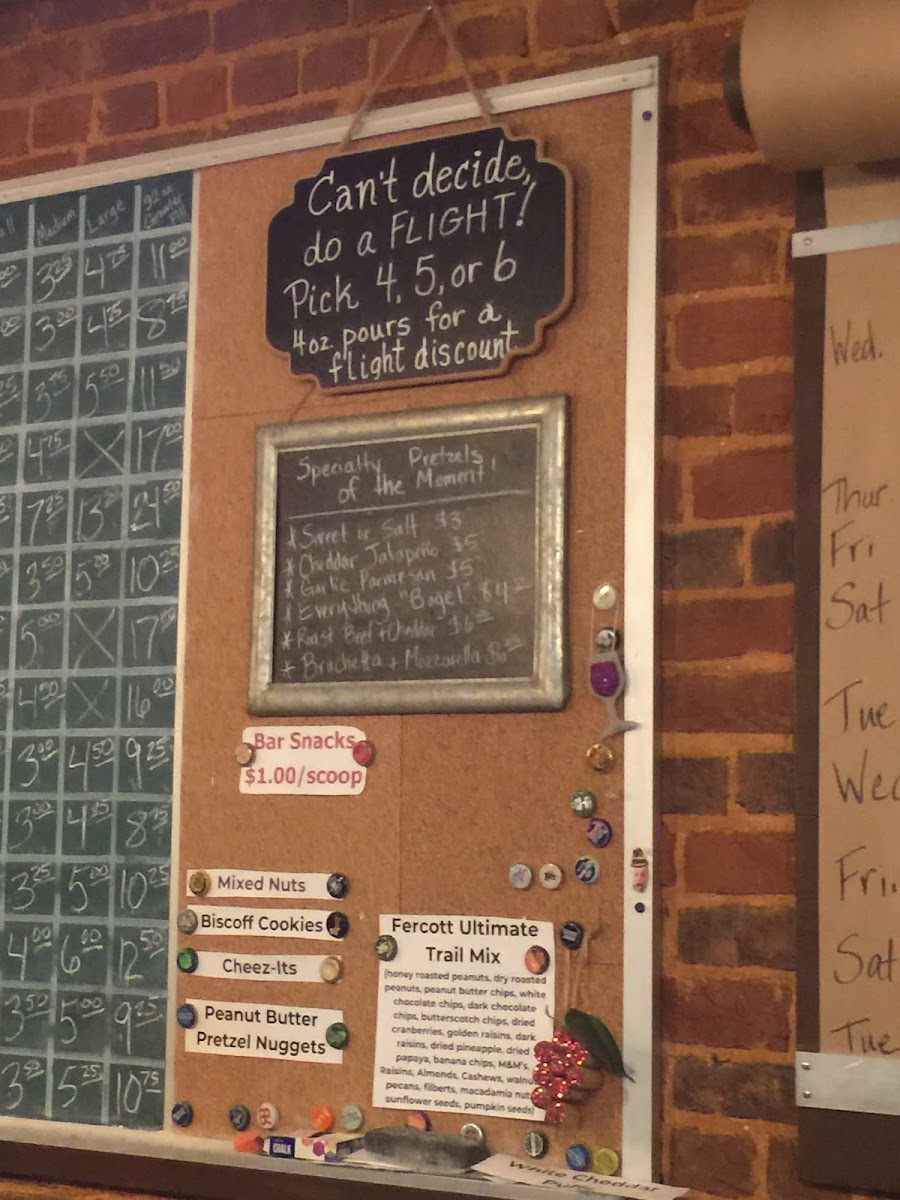 Medium Large 32 oz
3.25 4.75 11.00
3.00 4.25 8.75
3.75 5.50 11.50
4.75 X 17.00
7.25 13.25 24.50
3.50 5.00 10.25
5.00 X 17.50
4.50 X 16.00
3.00 4.50 9.25
3.00 4.25 8.75
3.25 5.00 10.25
4.00 6.00 12.50
3.50 5.00 9.25
3.50 5.25 10.75
Can't decide,
do a FLIGHT!
Pick 4, 5, or 6
4oz. pours for a
flight discount
Specialty Pretzels
of the Moment!
* Sweet or Salt $3
* Cheddar Jalapeño $5
* Garlic Parmesan $5
* Everything "Bagel" $4
* Roast Beef + Cheddar $6.00
* Bruchetta + Mozzarella $6.00
Bar Snacks
$1.00/scoop
Mixed Nuts
Biscoff Cookies
Cheez-Its
Peanut Butter
Pretzel Nuggets
Fercott Ultimate
Trail Mix
(honey roasted peanuts, dry roasted
peanuts, peanut butter chips, white
chocolate chips, dark chocolate
chips, butterscotch chips, dried
cranberries, golden raisins, dark
raisins, dried pineapple, dried
papaya, banana chips, M&M's,
Raisins, Almonds, Cashews, walnu
pecans, filberts, macadamia nut
sunflower seeds, pumpkin seeds)
CHALK
White Cheddar
Wed.
Thur.
Fri
Sat
Tue
Wed
Fri.
Sat
Tue